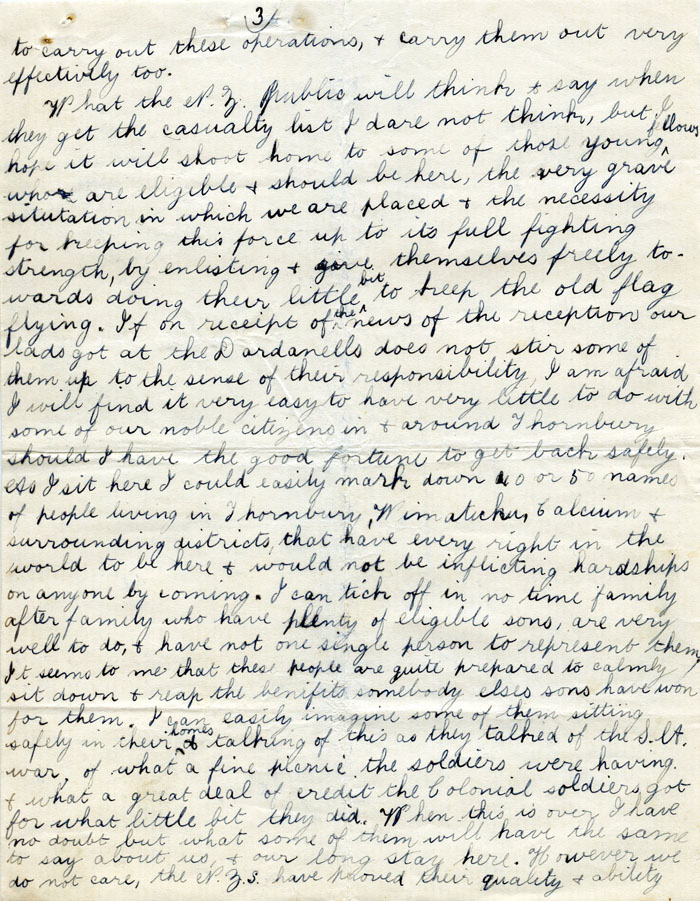 3
to carry out these operations, & carry them out very
effectively too.
What the N.Z. Public will think & say when
they get the casualty list I dare not think, but I
hope it will shoot home to some of those young fellows
who are eligible & should be here, the very grave
situtation in which we are placed & the necessity
for keeping this force up to its full fighting
strength, by enlisting & give themselves freely to-
wards doing their little bit to keep the old flag
flying. If on receipt of the news of the reception our
lads got at the Dardanells does not stir some of
them up to the sense of their responsibility, I am afraid
I will find it very easy to have very little to do with
some of our noble citizens in & around Thornbury
should I have the good fortune to get back safely.
As I sit here I could easily mark down 40 or 50 names
of people living in Thornbury, Wimatuku, Calcium &
surrounding districts, that have every right in the
world to be here & would not be inflicting hardships
on anyone by coming. I can tick off in no time family
after family who have plenty of eligible sons, are very
well to do, & have not one single person to represent them,
It seems to me that these people are quite prepared to calmly
sit down & reap the benifits somebody elses sons have won
for them. I can easily imagine some of them sitting
safely in their homes talking of this as they talked of the S.A.
war, of what a fine picnic the soldiers were having.
& what a great deal of credit the Colonial soldiers got
for what little bit they did. When this is over I have
no doubt but what some of them will have the same
to say about us, & our long stay here. However we
do not care, the N.Z.s. have proved their quality & ability